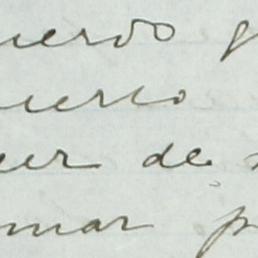 uerdo g
uerto
uer de
mar p